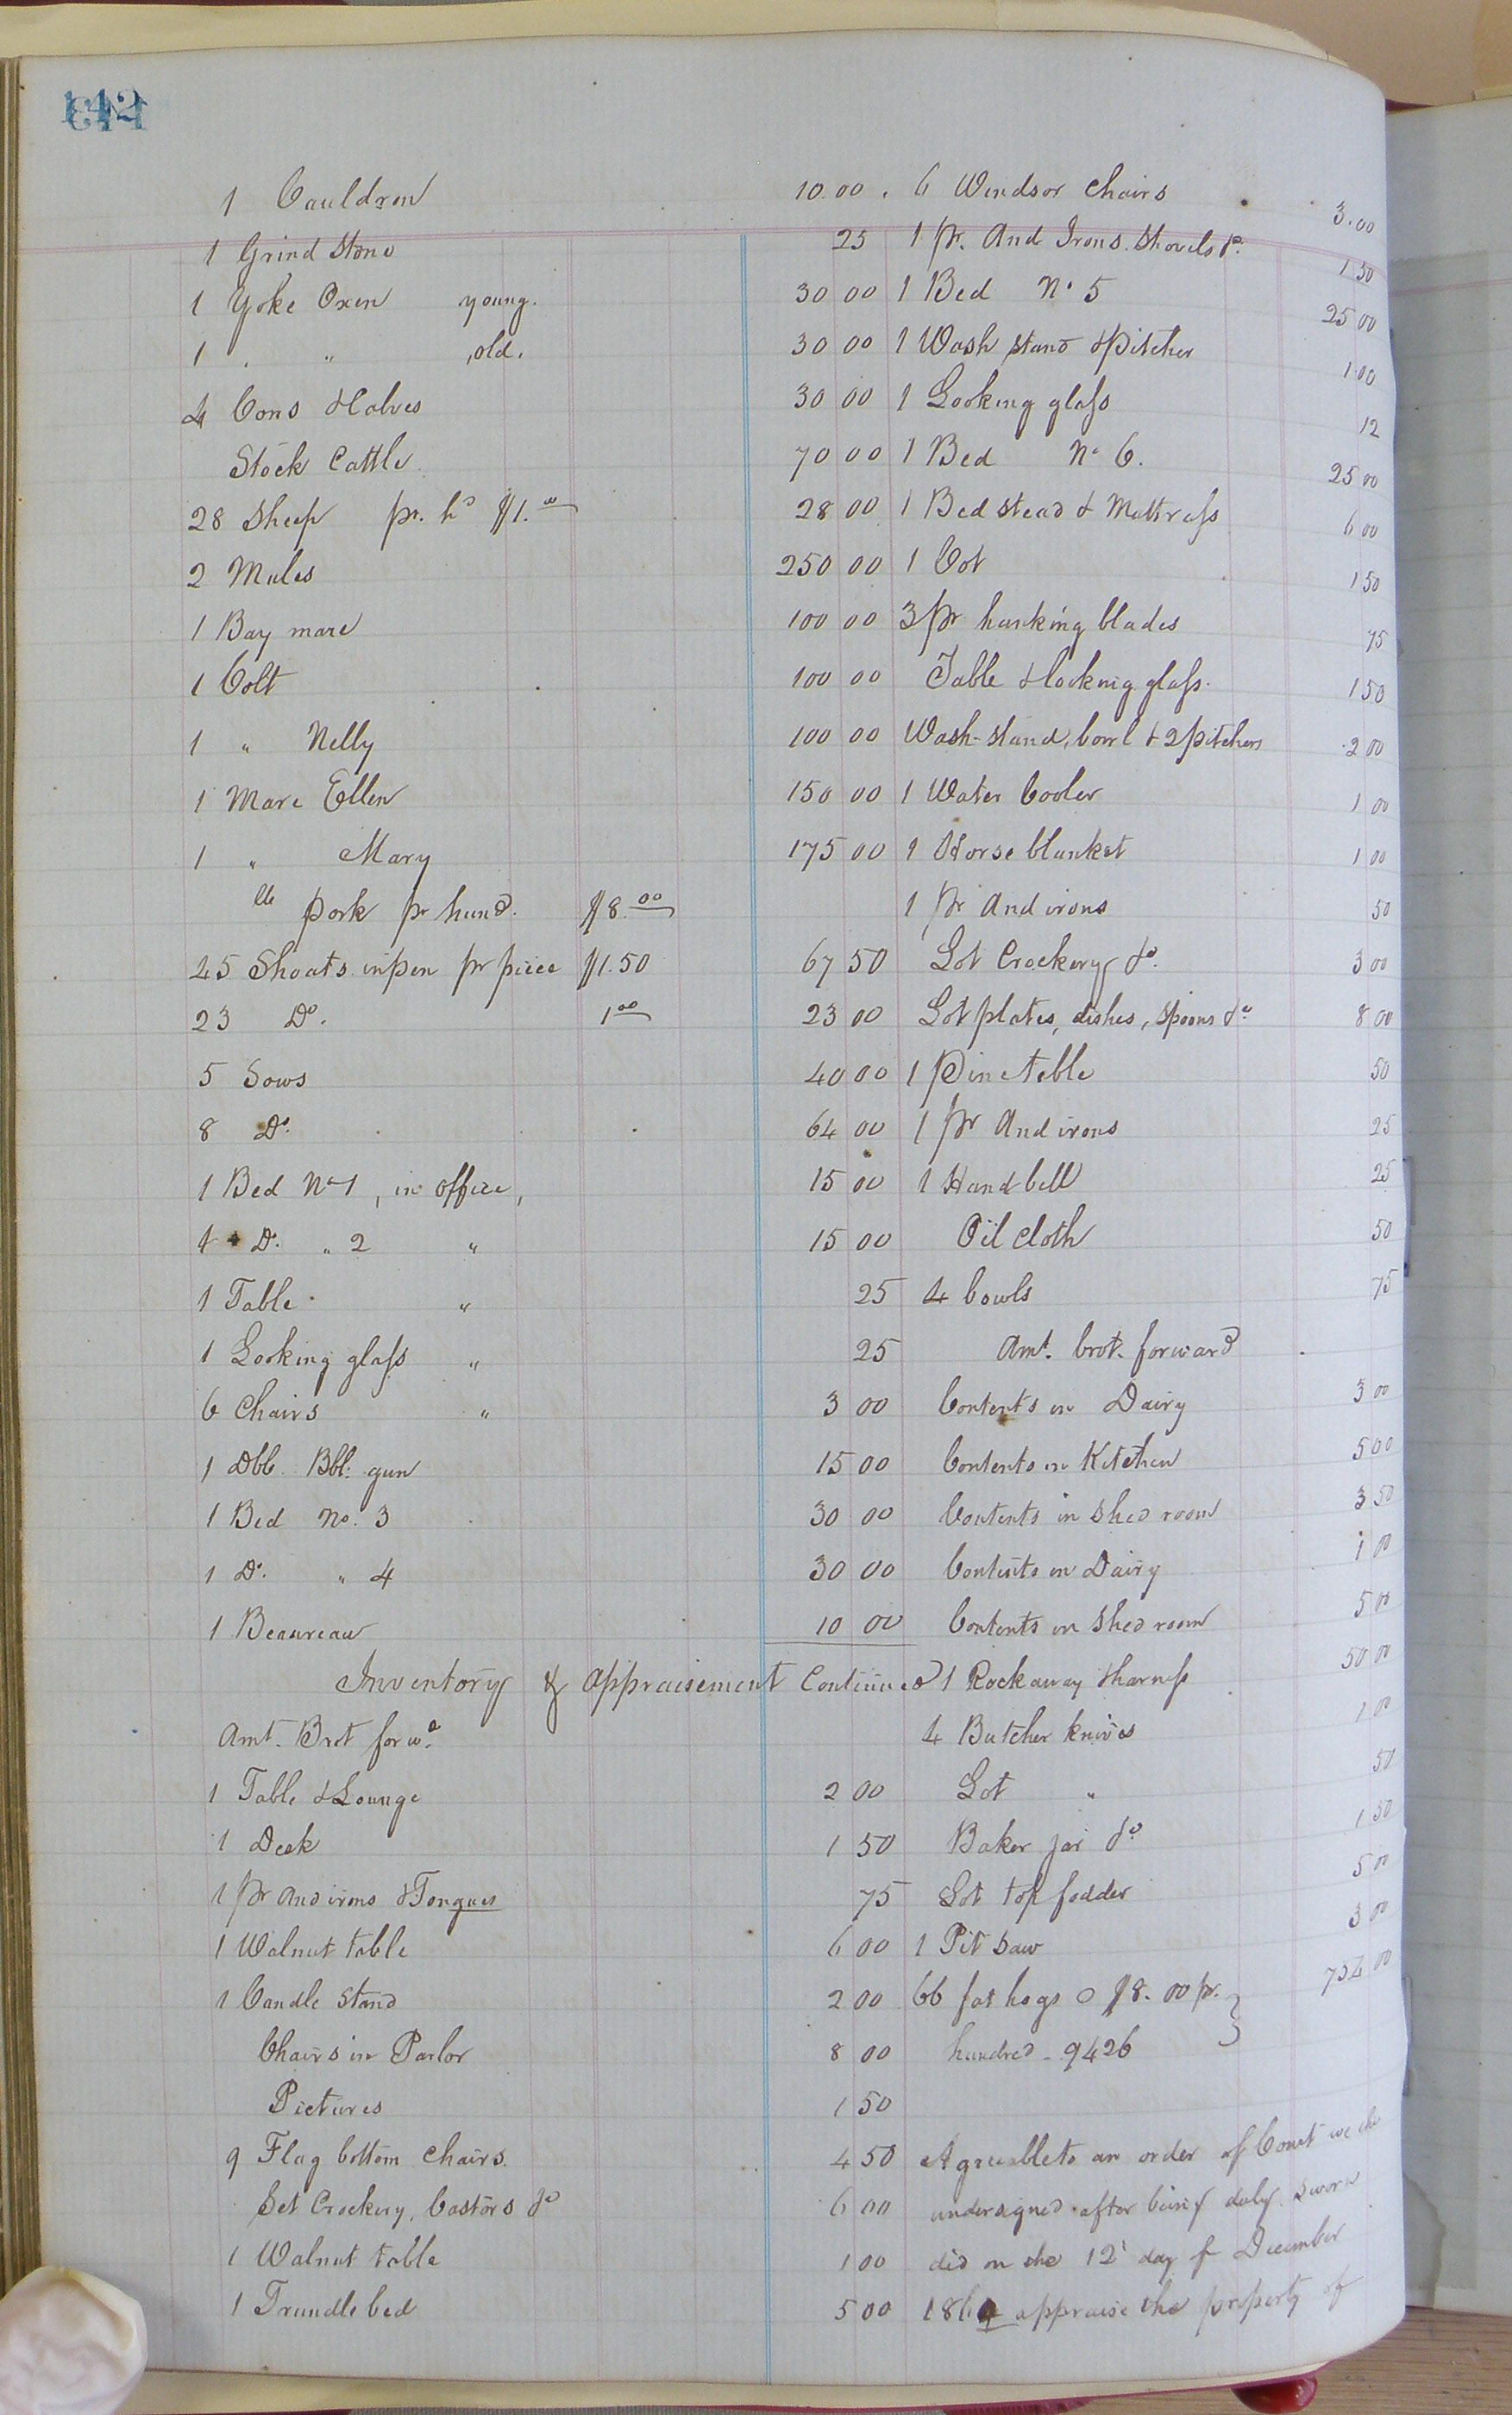 1 Cauldron 10.00
1 Grind Stone 25
1 Yoke Oxen young. 30 00
1 " " old. 30 00
4 Cows & Calves 30 00
Stock Cattle 70 00
28 Sheep pr. hd $1.00 28 00
2 Mules 250 00
1 Bay mare 100 00
1 Colt 100 00
1 " Nelly 100 00
1 Mare Ellen 150 00
1 " Mary 175 00
lb pork pr hund. $8.00
45 Shoats in pen pr piece $1.50 67 50
23 Do. 1 00 23 00
5 Sows 40 00
8 Do. 64 00
1 Bed No 1, in office, 15 00
1 Do. " 2 " 15 00
1 Table " 25
1 Looking glass " 25
6 Chairs " 3 00
1 Dbb. Bbl. gun 15 00
1 Bed No. 3 30 00
1 Do. " 4 30 00
1 Beaureau 10 00
Inventory & Appraisement Continued
Amt. Brot forwd.
1 Table & Lounge 2 00
1 Desk 1 50
1 pr And irons & Tongues 75
1 Walnut table 6 00
1 Candle Stand 2 00
Chairs in Parlor 8 00
Pictures 1 50
9 Flag bottom Chairs. 4 50
Set Crockery, Castors &c 6 00
1 Walnut table 1 00
1 Trundle bed 5 00
6 Windsor Chairs 3.00
1 pr. And Irons. Shovels &c. 1 50
1 Bed No 5 25 00
1 Wash stand & Pitcher 1 00
1 Looking glass 12
1 Bed No 6. 25 00
1 Bed stead & Mattrass 6 00
1 Cot 1 50
3 pr hanking blades 75
Table & looking glass. 1 50
Wash-stand, bowl & 2 pitchers 2 00
1 Water Cooler 1 00
1 Horse blanket 1 00
1 pr And irons 50
Lot Crockery &c. 3 00
Lot plates, dishes, spoons &c 8 00
1 Pine table 50
1 pr And irons 25
1 Hand bell 25
Oil cloth 50
4 bowls 75
Amt. brot. forward
Contents in Dairy 3 00
Contents in Kitchen 5 00
Contents in Shed room 3 50
Contents in Dairy 1 00
Contents in Shed room 5 00
1 Rockaway & harness 50 00
4 Butcher knives 1 00
Lot " 50
Baker jar &c 1 50
Lot top fodder 5 00
1 Pit saw 3 00
66 fat hogs @ $8.00 pr. 754 00
hundred - 9426
Agreeable to an order of Court we the
undersigned after being duly sworn
did on the 12' day of December
appraise the property of